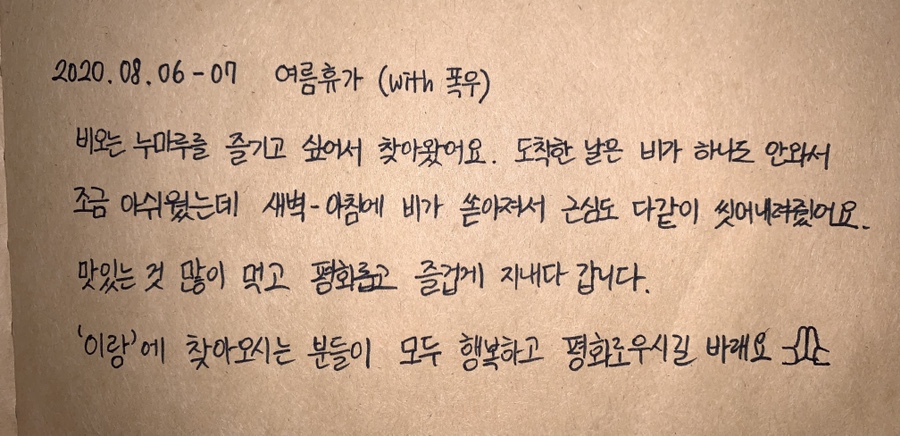 2020.08.06-07 여름휴가 (with 폭우)
비오는 누마루를 즐기고 싶어서 찾아왔어요. 도착한 날은 비가 하나도 안와서
조금 아쉬웠는데 새벽-아침에 비가 쏟아져서 근심도 다같이 씻어내려줬어요.
맛있는 것 많이 먹고 평화롭고 즐겁게 지내다 갑니다.
'이랑'에 찾아오시는 분들이 모두 행복하고 평화로우시길 바래요